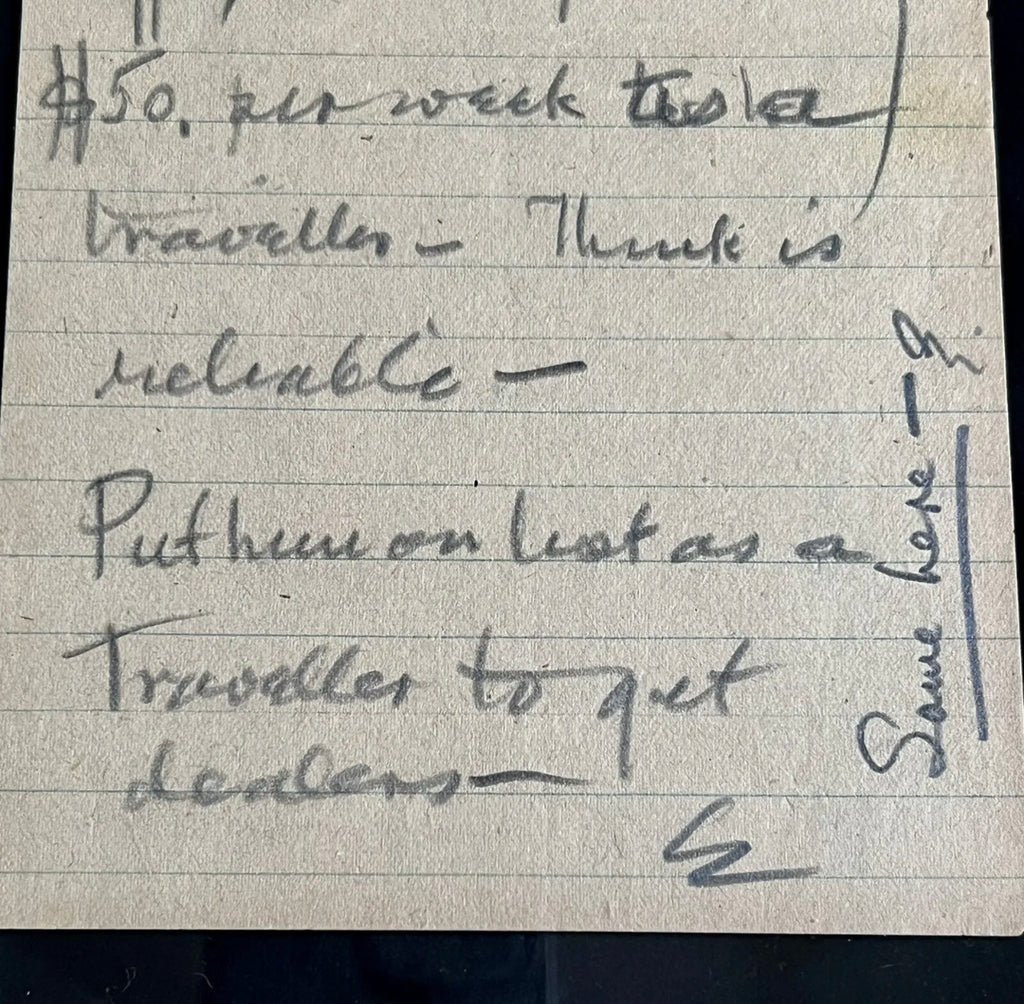 $50. per week is a
traveller — Think is
reliable —
Put him on list as a
Traveller to get
dealers —
E
Same here —